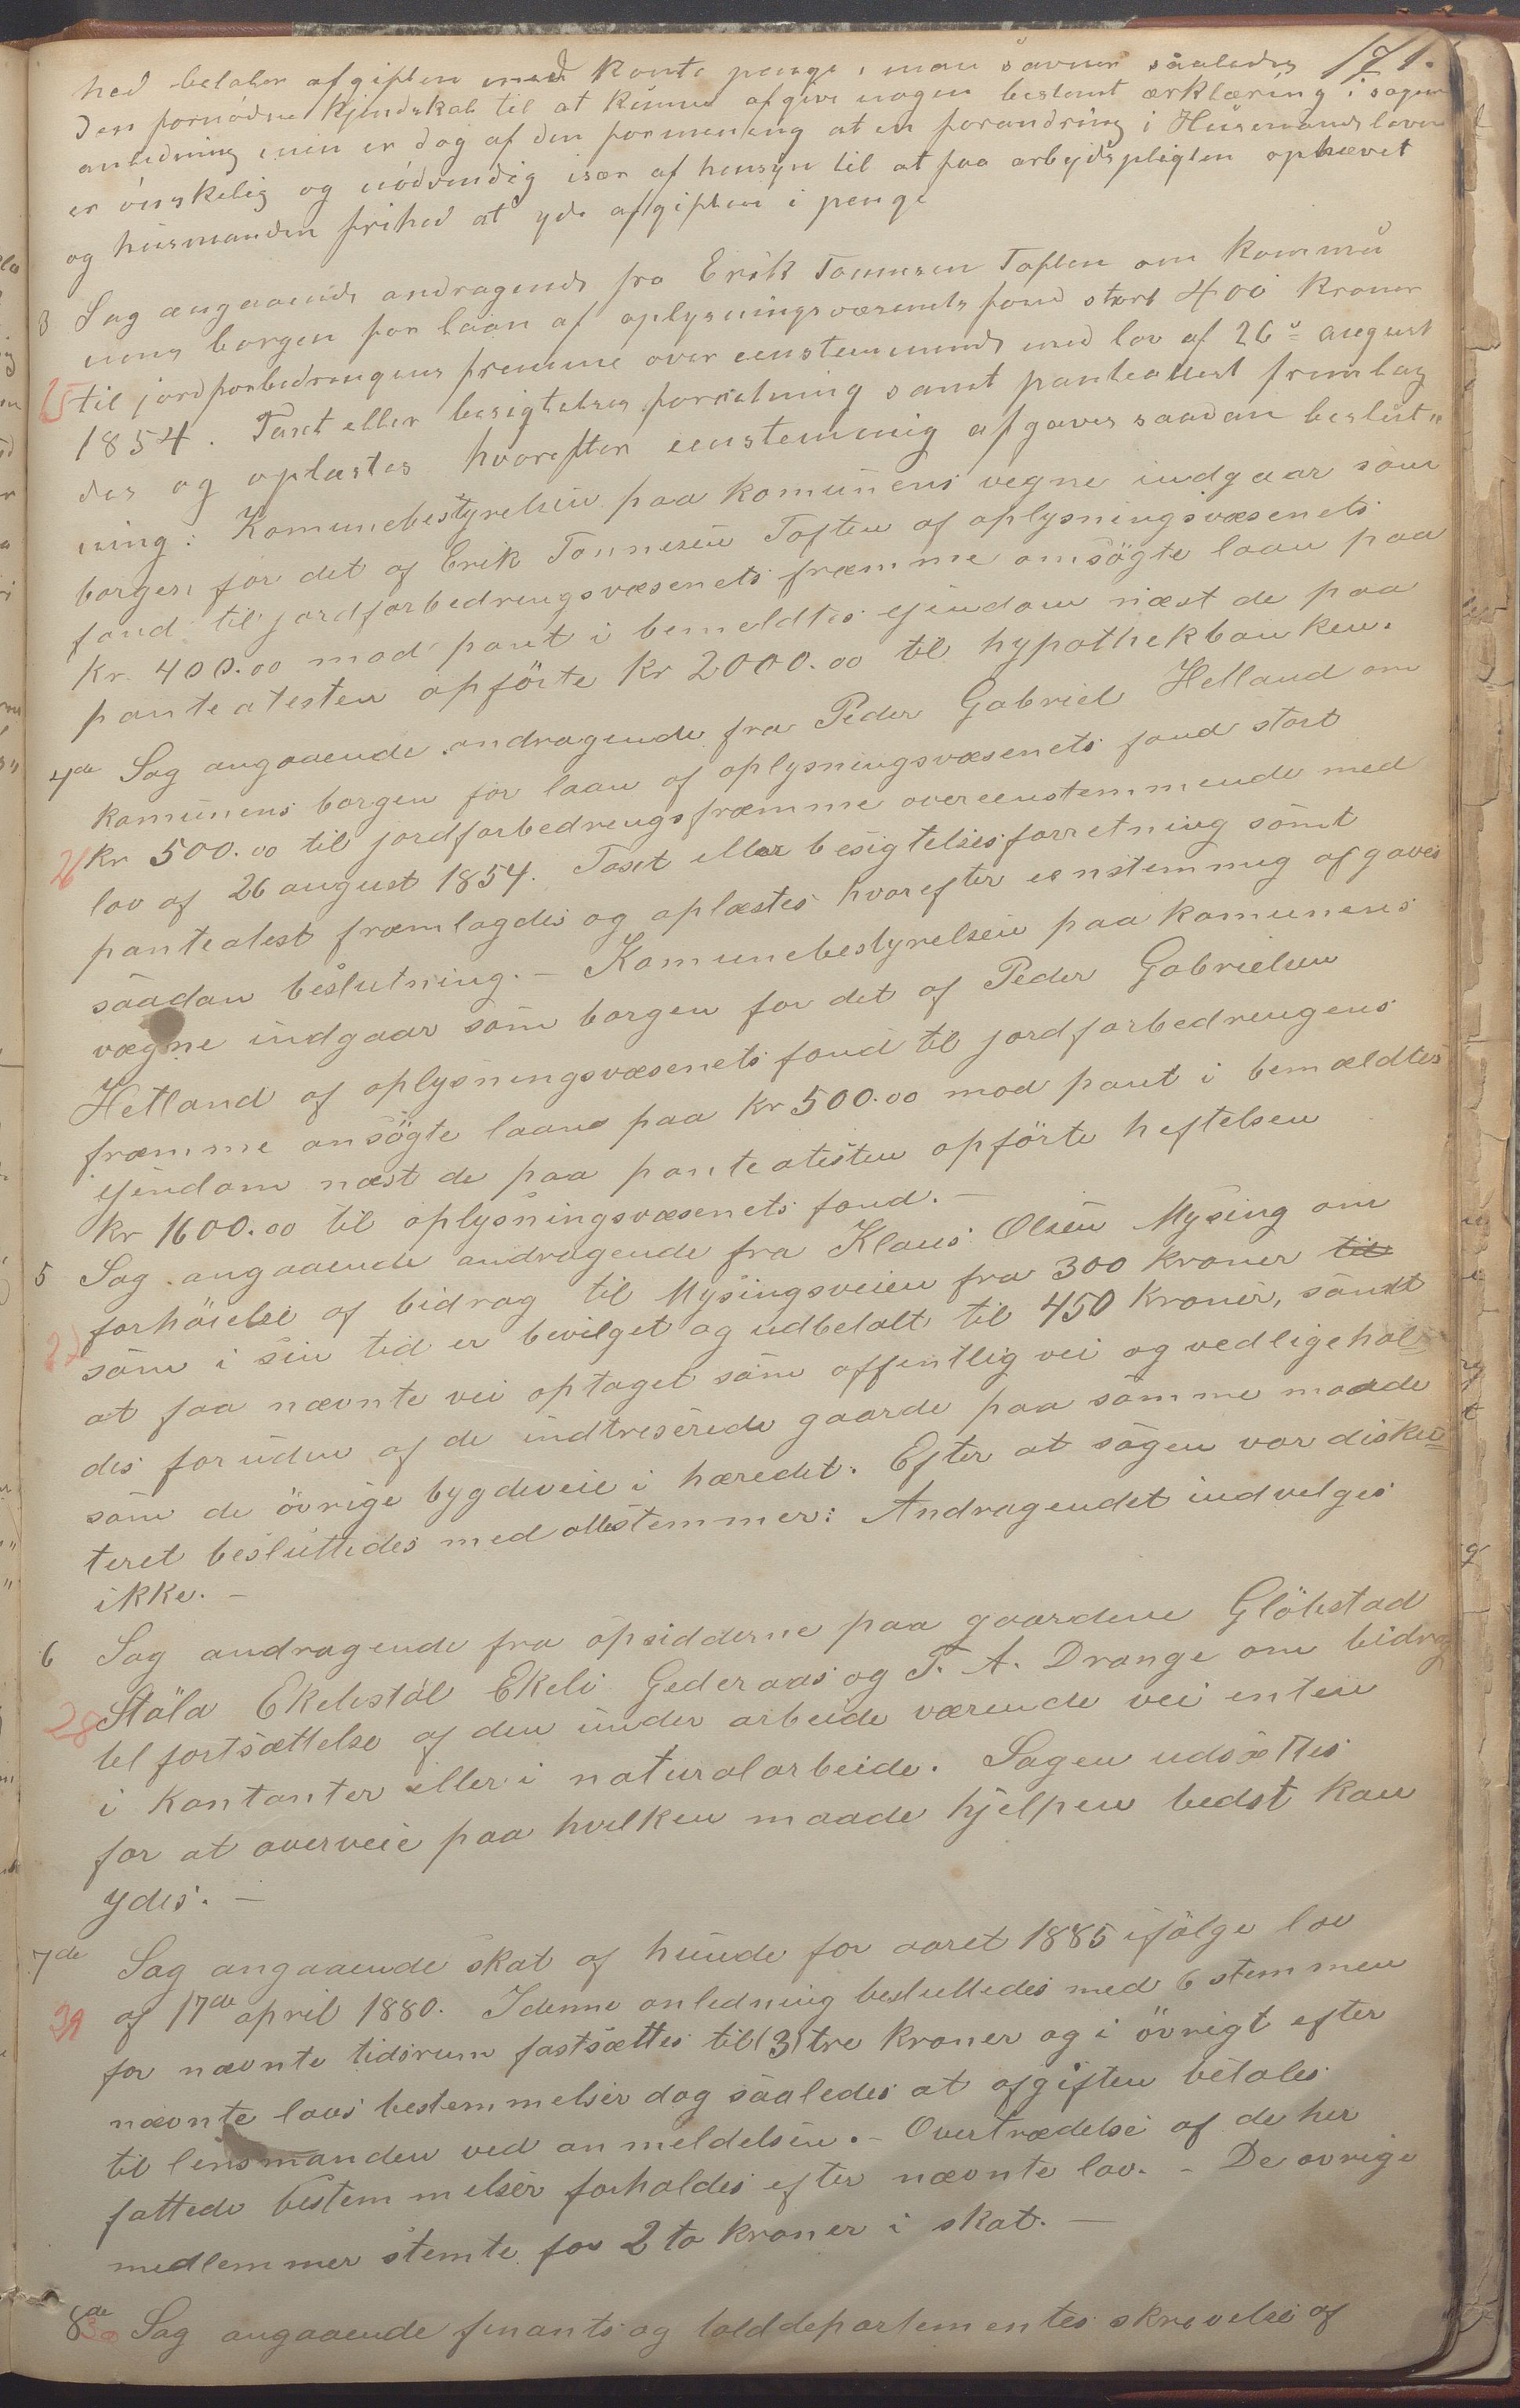 171.
hed betaler afgiften med konte penge, man savner saaledes
den fornødne kjendskab til at kunne afgive nogen bestemt ærklæring i sagens
anledning men er dog af den formening at en forandring i Husmandsloven
er ønskelig og nødvendig især af hensyn til at faa arbejdspligten ophævet
og husmanden frihed at yde afgiften i penge
3 Sag angaaende andragende fra Erik Tønnesen Toften om Kommu
nens borgen for laan af oplysningsvæsenets fond stort 400 kroner
25 til jordforbedringens fremme over eenstemmende med lov af 26de august
1854. Taxt eller besigtelses forretning samt panteattest fremlag
des og oplæstes hvorefter eenstemmig afgaves saadan beslut„
ning: Komunebestyrelsen paa komunens vegne indgaar som
borgen for det af Erik Tønnesen Toften af oplysningsvæsenets
fond til jordforbedrengsvæsenets fræmme ansøgte laan paa
Kr. 400.00 mod pant i bemeldtes ejendom næst de paa
panteatesten opførte Kr 2000.00 til hypothekbanken.
4de Sag angaaende andragende fra Peder Gabriel Hetland om
komunens borgen for laan af oplysningsvæsenets fond stort
26 kr 500.00 til jordforbedrengs fræmme overeenstemmende med
lov af 26 august 1854. Taxt eller besigtelsesforretning samt
panteatest fræmlagdes og oplæstes hvorefter eenstemmig afgaves
saadan beslutning. – Komunebestyrelsen paa komunens
vægne indgaar som borgen for det af Peder Gabrielsen
Hetland af oplysningsvæsenets fond til jordforbedrengens
fræmme ansøgte laan paa Kr 500.00 mod pant i bemældtes
ejendom næst de paa panteatesten opførte heftelsen
Kr 1600.00 til oplysningsvæsenets fond. –
5 Sag angaaende andragende fra Klaus Olsen Mysing om
forhøielse af bidrag til Mysingsveien fra 300 kroner til
27 som i sin tid er bevilget og udbetalt til 450 kroner, samt
at faa nævnte vei optaget som offentlig vei og vedligehol=
des foruden af de indtreserede gaarde paa samme maade
som de øvrige bygdeveie i hæredet. Efter at sagen var disku=
teret besluttedes med alle stemmer: Andragendet indvelges
ikke. –
6 Sag andragende fra opsidderne paa gaardene Gløbstad
28 Støla Ekelistøl Ekeli Gederaas og T. A. Drange om bidrag
til fortsættelse af den under arbeide værende vei enten
i kontanter eller i naturalarbeide. Sagen udsættes
for at overveie paa hvilken maade hjelpen bedst kan
ydes. –
7de Sag angaaende skat af hunde for aaret 1885 ifølge lov
29 af 17de april 1880. I denne anledning besluttedes med 6 stemmer
for nævnte tidsrum fastsættes til (3) tre kroner og i øvrigt efter
nævnte lovs bestemmelser dog saaledes at afgiften betales
til lensmanden ved anmeldelsen. – Overtrædelse af de her
fattede bestemmelser forholdes efter nævnte lov. – De øvrige
medlemmer stemte for 2 to kroner i skat. –
8de 30 Sag angaaende finants og tolddepartementes skrivelse af